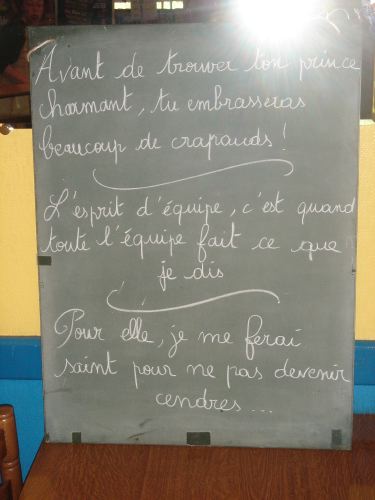 Avant de trouver ton prince
charmant, tu embrasseras
beaucoup de crapauds !
L'esprit d'équipe, c'est quand
toute l'équipe fait ce que
je dis
Pour elle, je me ferai
saint pour ne pas devenir
cendres...